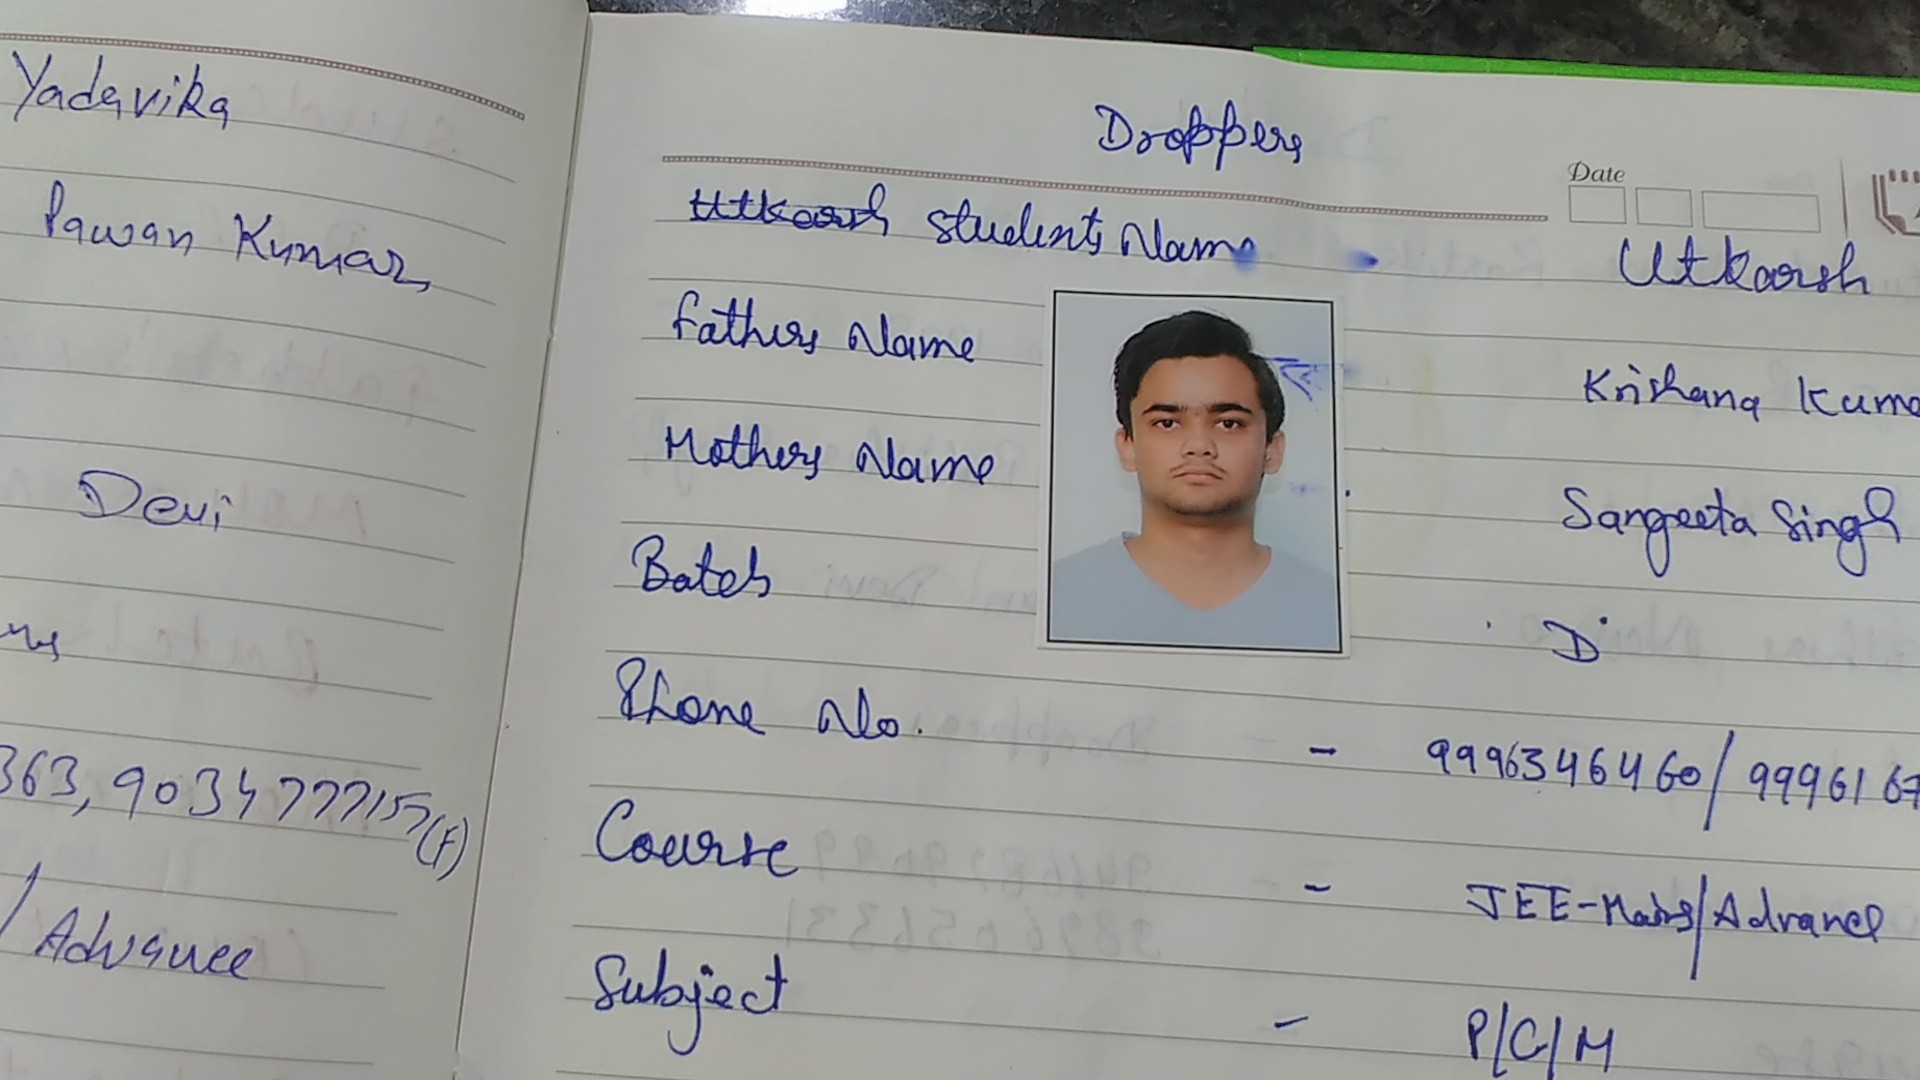 Yadavika
Pawan Kumar
Devi
363, 9034777157(F)
/ Advance
Droppers
Date
Utkarsh Students Name Utkarsh
Fathers Name Krishana Kuma
Mothers Name Sangeeta Singh
Batch D
Phone No. - 9996346460/ 9996167
Course - JEE-Mains/Advance
Subject - P/C/M